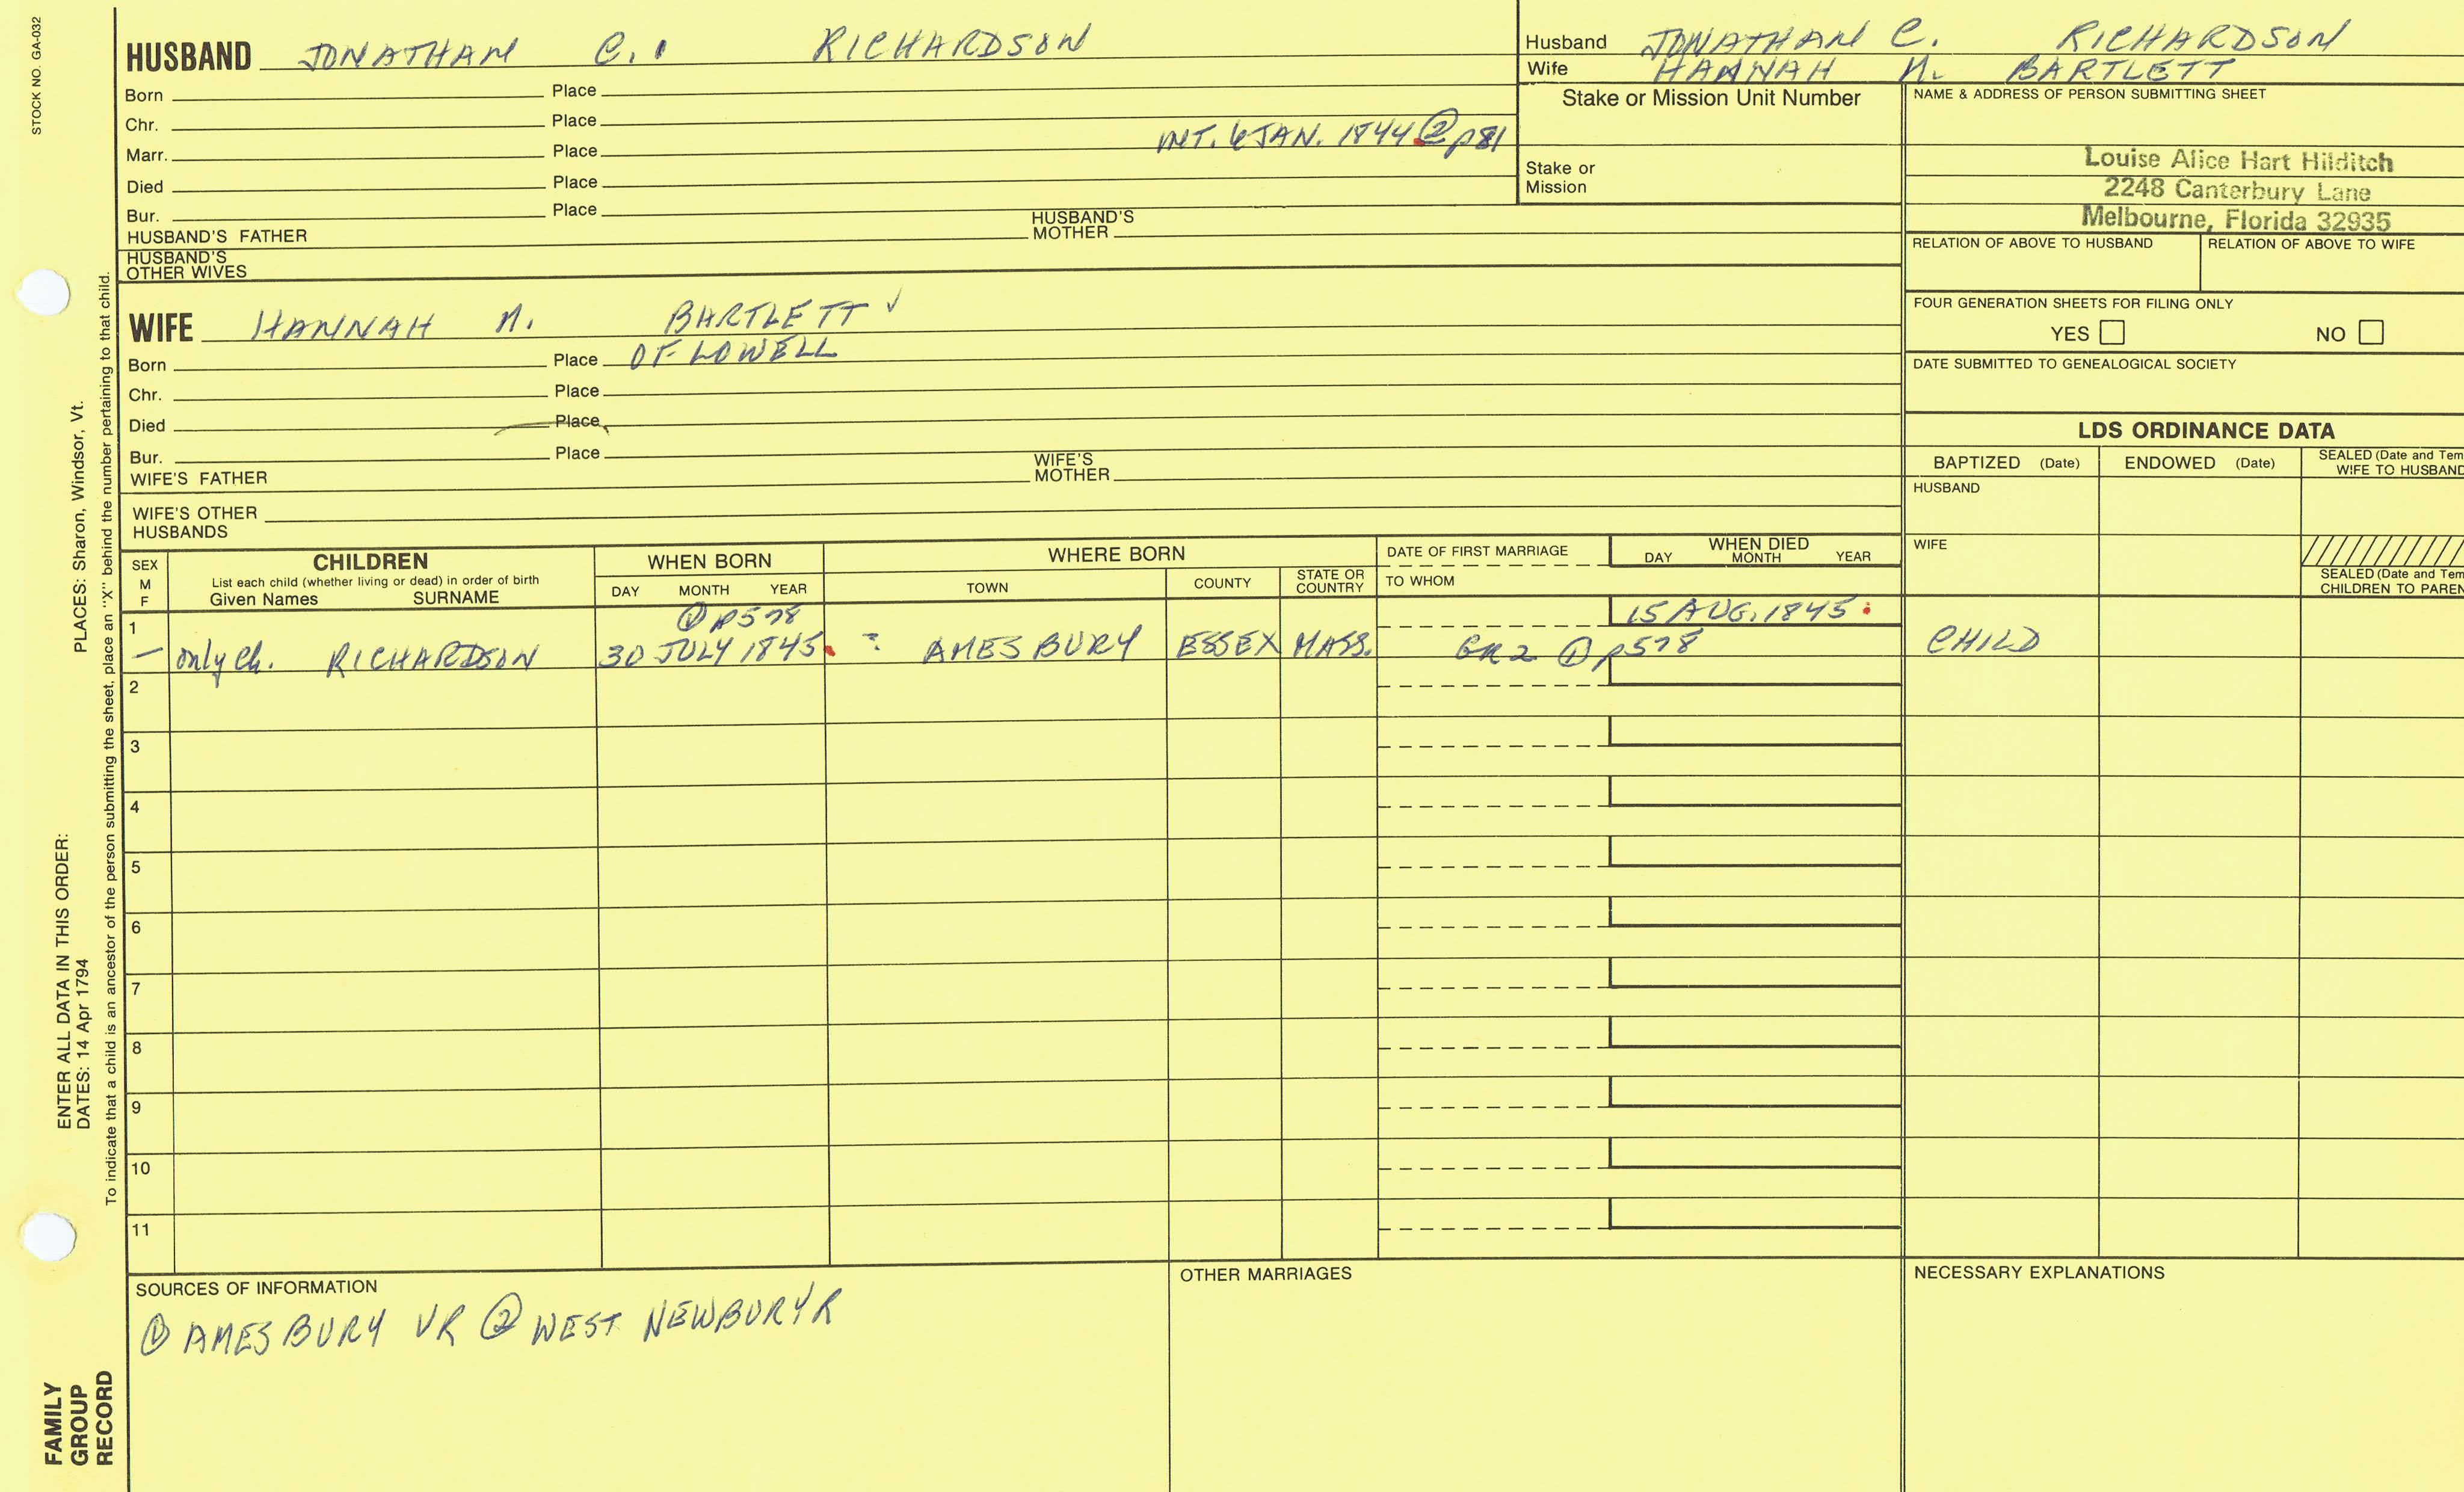 STOCK NO. GA-032
HUSBAND JONATHAN C. RICHARDSON
Born Place
Chr. Place
Marr. Place INT. 6 JAN. 1844 ② p81
Died Place
Bur. Place
HUSBAND'S FATHER HUSBAND'S MOTHER
HUSBAND'S OTHER WIVES
Husband JONATHAN C. RICHARDSON
Wife HANNAH N. BARTLETT
Stake or Mission Unit Number
Stake or
Mission
NAME & ADDRESS OF PERSON SUBMITTING SHEET
Louise Alice Hart Hilditch
2248 Canterbury Lane
Melbourne, Florida 32935
RELATION OF ABOVE TO HUSBAND RELATION OF ABOVE TO WIFE
FOUR GENERATION SHEETS FOR FILING ONLY
YES NO
DATE SUBMITTED TO GENEALOGICAL SOCIETY
WIFE HANNAH N. BARTLETT ✓
Born Place OF LOWELL
Chr. Place
Died Place
Bur. Place
WIFE'S FATHER WIFE'S MOTHER
WIFE'S OTHER
HUSBANDS
LDS ORDINANCE DATA
BAPTIZED (Date) ENDOWED (Date) SEALED (Date and Tem
WIFE TO HUSBAND
HUSBAND
WIFE
SEALED (Date and Tem
CHILDREN TO PAREN
SEX
M
F
CHILDREN
List each child (whether living or dead) in order of birth
Given Names SURNAME
WHEN BORN
DAY MONTH YEAR
WHERE BORN
TOWN COUNTY STATE OR COUNTRY
DATE OF FIRST MARRIAGE
TO WHOM
WHEN DIED
DAY MONTH YEAR
1 ① p578 15 AUG. 1845
— only ch. RICHARDSON 30 JULY 1845 : AMESBURY ESSEX MASS. GR2 ① p578 CHILD
2
3
4
5
6
7
8
9
10
11
SOURCES OF INFORMATION
① AMESBURY VR ② WEST NEWBURY R
OTHER MARRIAGES
NECESSARY EXPLANATIONS
PLACES: Sharon, Windsor, Vt.
ENTER ALL DATA IN THIS ORDER:
DATES: 14 Apr 1794
To indicate that a child is an ancestor of the person submitting the sheet, place an "X" behind the number pertaining to that child.
FAMILY
GROUP
RECORD